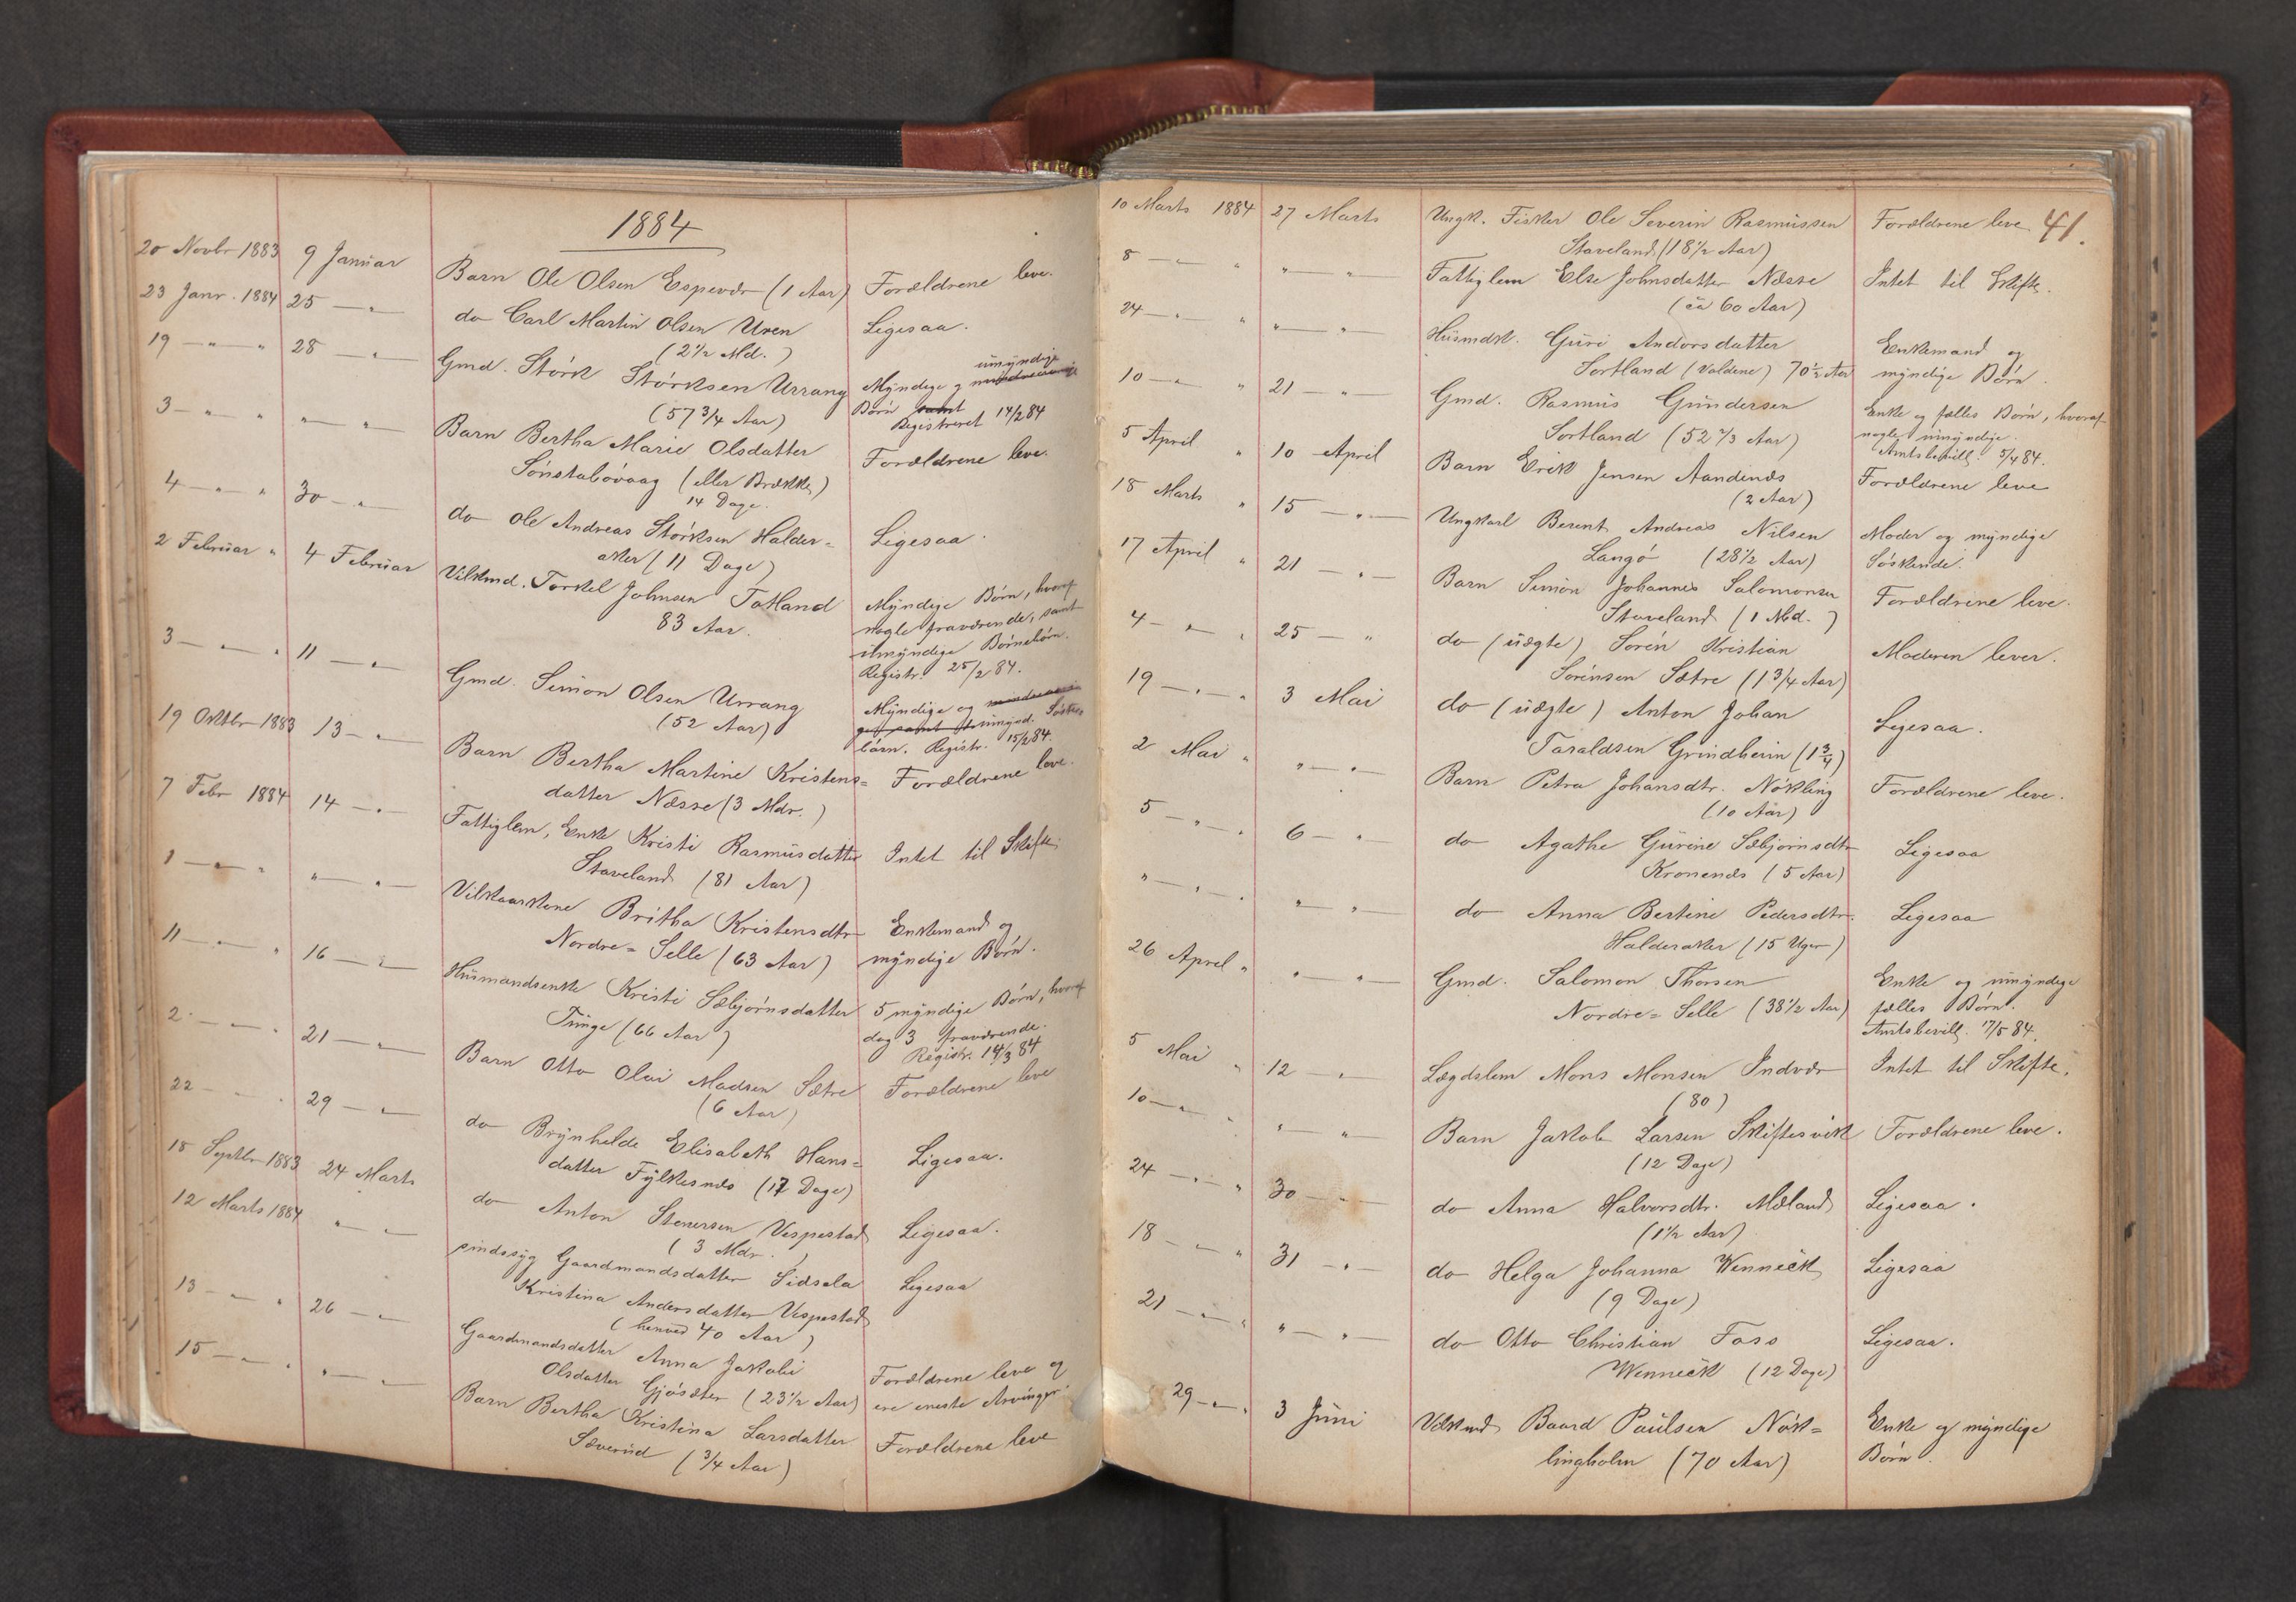 1884
20 Novbr 1883 9 Januar Barn Ole Olsen Espevær (1 Aar) Forældrene leve.
23 Janr. 1884 25 — " — do Carl Martin Olsen Uren Ligesaa.
(2 1/2 Md.)
19 — " — " 28 — " — Gmd. Störk Störksen Urrang Myndige og umyndige
(57 3/4 Aar) Börn
Registreret 14/2 84
3 — " — " " — " — Barn Bertha Marie Olsdatter Forældrene leve.
Sönstabövaag (eller Brække)
14 Dage.
4 — " — " 30 — " — do Ole Andreas Störksen Halder= Ligesaa.
aker (11 Dage)
2 Februar " 4 Februar Vilkmd. Torkel Johnsen Totland Myndige Börn, hvoraf
83 Aar. nogle fraværende, samt
umyndige Börnebörn.
Registr. 25/2 84.
3 — " — " 11 — " — Gmd. Simon Olsen Urrang Myndige og
(52 Aar) umynd. Söster
börn. Registr. 15/2 84.
19 Oktbr 1883 13 — " Barn Bertha Martine Kristens= Forældrene leve.
datter Næsse (3 Mdr.)
7 Febr 1884 14 — " — Fattiglem, Enke Kristi Rasmusdatter Intet til Skifte.
Staveland (81 Aar)
1 — " — " " — " — Vilkaarskone Britha Kristensdtr Enkemand og
Nordre= Selle (63 Aar) myndige Börn.
11 — " — " 16 — " — Husmandsenke Kristi Sæbjörnsdatter 5 myndige Börn, hvoraf
Tunge (66 Aar) dog 3 fraværende.
Registr. 14/3 84
2 — " — " 21 — " — Barn Otto Olai Madsen Sætre Forældrene leve
(6 Aar)
22 — " — " 29 — " — do Brynhilde Elisabeth Hans= Ligesaa.
datter Fylkesnæs (17 Dage)
18 Septbr 1883 24 Marts do Anton Stenersen Vespestad Ligesaa.
(3 Mdr.)
12 Marts 1884 " — " — sindssyg Gaardmandsdatter Sidsela Ligesaa
Kristina Andersdatter Vespestad
(henved 40 Aar)
13 — " — " 26 — " — Gaardmandsdatter Anna Jakobi Forældrene leve og
Olsdatter Gjösæter (23 1/2 Aar) ere eneste Arvinger.
15 — " — " " — " — Barn Bertha Kristina Larsdatter Forældrene leve
Sæverud (3/4 Aar)
41.
10 Marts 1884 27 Marts Ungk. Fisker Ole Severin Rasmussen Forældrene leve
Staveland (18 1/2 Aar)
8 — " — " " — " — Fattiglem Else Johnsdatter Næsse Intet til Skifte.
(ca 60 Aar)
24 — " — " " — " — Husmdsk. Guri Andorsdatter Enkemand og
Sortland (Valdene) 70 1/2 Aar myndige Börn.
10 — " — " 21 — " — Gmd. Rasmus Gundersen Enke og fælles Börn, hvoraf
Sortland (52 2/3 Aar) nogle umyndige.
Amtsbevill. 5/4 84.
5 April " 10 April Barn Erik Jensen Aandenæs Forældrene leve
(2 Aar)
18 Marts " 15 — " — Ungkarl Berent Andreas Nilsen Moder og myndige
Langö (28 1/2 Aar) Söskende.
17 April " 21 — " — Barn Simon Johannes Salomonsen Forældrene leve.
Staveland (1 Md.)
4 — " — " 25 — " do (uægte) Sören Kristian Moderen lever.
Sörensen Sætre (1 3/4 Aar)
19 — " — " 3 Mai do (uægte) Anton Johan Ligesaa.
Taraldsen Grindheim (1 3/4)
2 Mai " " — " — Barn Petra Johansdtr. Nökling Forældrene leve.
(10 Aar)
5 — " — " 6 — " — do Agathe Gurine Sæbjörnsdtr Ligesaa
Kronenæs (5 Aar)
" — " — " " — " — do Anna Bertine Pedersdtr. Ligesaa
Halderaker (15 Uger)
26 April " " — " — Gmd. Salomon Thorsen Enke og umyndige
Nordre= Selle (38 1/2 Aar) fælles Börn.
Amtsbevill. 17/5 84.
5 Mai " 12 — " — Lægdslem Mons Monsen Indvær Intet til Skifte.
(80)
10 — " — " " — " — Barn Jakob Larsen Skiftesvik Forældrene leve.
(12 Dage)
24 — " — " 30 — " — do Anna Halvorsdtr. Mæland Ligesaa.
(1 1/2 Aar)
18 — " — " 31 — " — do Helga Johanna Wenneck Ligesaa
(9 Dage)
21 — " — " " — " — do Otto Christian Foss Ligesaa.
Wenneck (12 Dage)
29 — " — " 3 Juni Vilkmd Baard Paulsen Nök= Enke og myndige
lingholm (70 Aar) Börn.